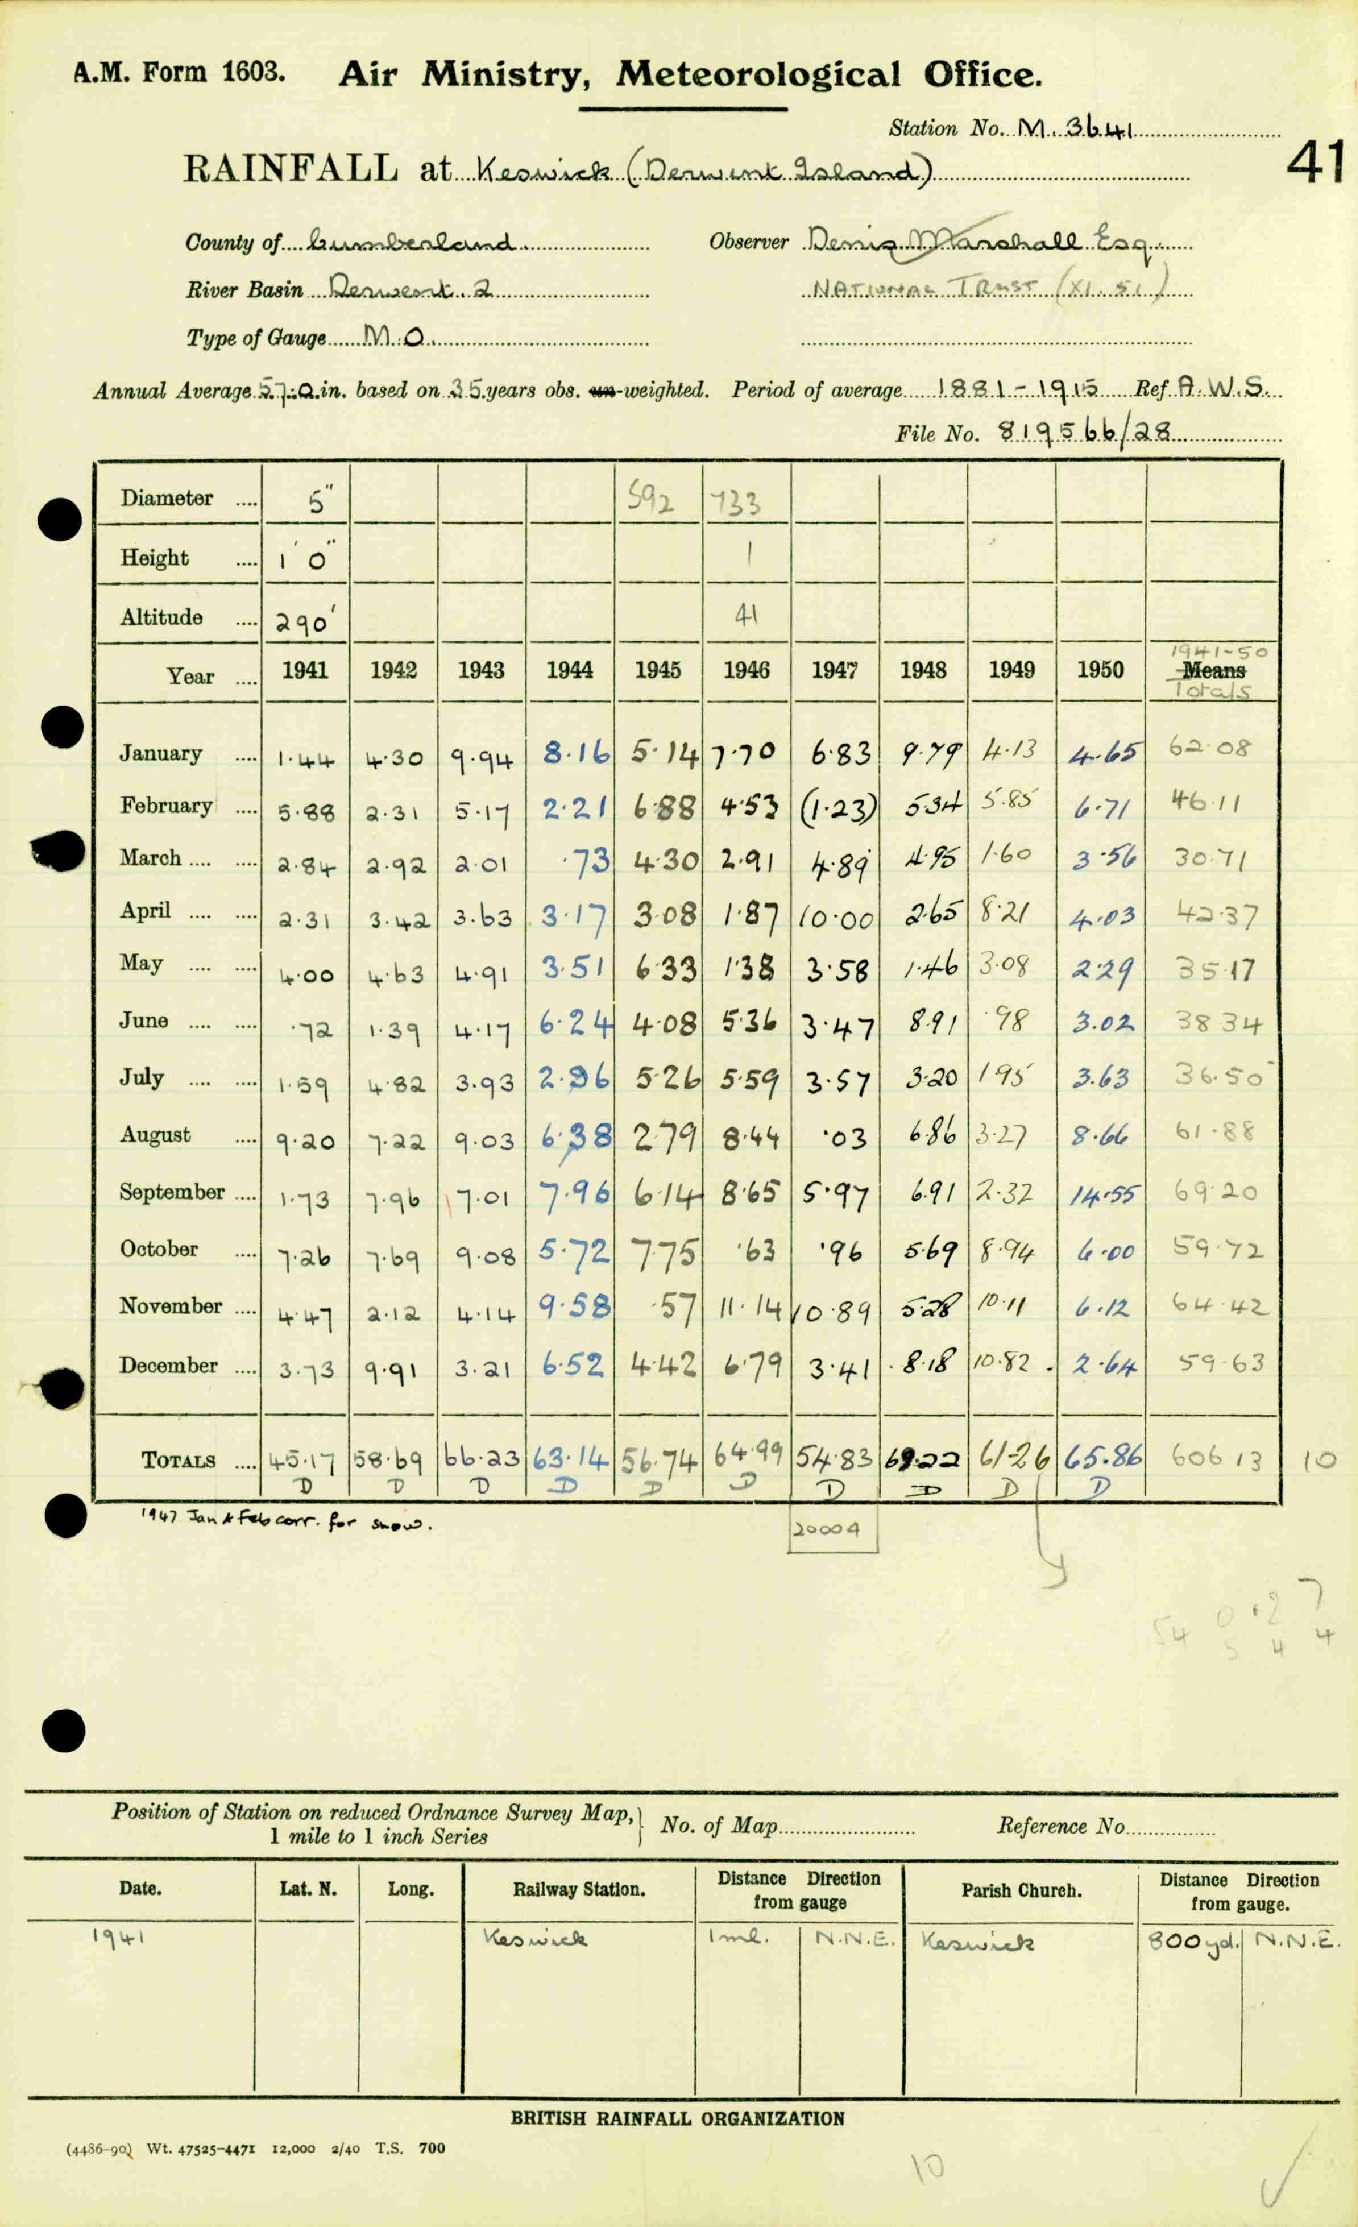 A.M. Form 1603. Air Ministry, Meteorological Office.
Station No. M. 3641
41
RAINFALL at Keswick (Derwent Island)
County of Cumberland Observer Denis Marshall Esq.
River Basin Derwent. 2 NATIONAL TRUST (XI. 51)
Type of Gauge M.O.
Annual Average 57.0 in. based on 35 years obs. un-weighted. Period of average 1881-1915 Ref. A.W.S.
File No. 819566/28
Diameter .... 5" 592 733
Height .... 1' 0" 1
Altitude .... 290' 41
1941-50
Year .... 1941 1942 1943 1944 1945 1946 1947 1948 1949 1950 Means
Totals
January .... 1.44 4.30 9.94 8.16 5.14 7.70 6.83 9.79 4.13 4.65 62.08
February .... 5.88 2.31 5.17 2.21 6.88 4.53 (1.23) 5.34 5.85 6.71 46.11
March .... .... 2.84 2.92 2.01 .73 4.30 2.91 4.89 4.95 1.60 3.56 30.71
April .... .... 2.31 3.42 3.63 3.17 3.08 1.87 10.00 2.65 8.21 4.03 42.37
May .... .... 4.00 4.63 4.91 3.51 6.33 1.38 3.58 1.46 3.08 2.29 35.17
June .... .... .72 1.39 4.17 6.24 4.08 5.36 3.47 8.91 .98 3.02 38 34
July .... .... 1.59 4.82 3.93 2.96 5.26 5.59 3.57 3.20 1.95 3.63 36.50
August .... 9.20 7.22 9.03 6.38 2.79 8.44 .03 6.86 3.27 8.66 61.88
September .... 1.73 7.96 7.01 7.96 6.14 8.65 5.97 6.91 2.32 14.55 69.20
October .... 7.26 7.69 9.08 5.72 7.75 .63 .96 5.69 8.94 6.00 59.72
November .... 4.47 2.12 4.14 9.58 .57 11.14 10.89 5.28 10.11 6.12 64.42
December .... 3.73 9.91 3.21 6.52 4.42 6.79 3.41 8.18 10.82 2.64 59.63
TOTALS .... 45.17 58.69 66.23 63.14 56.74 64.99 54.83 69.22 61.26 65.86 606 13 10
D D D D D D D D D D
1947 Jan & Feb corr. for snow.
20004
Position of Station on reduced Ordnance Survey Map, 1 mile to 1 inch Series } No. of Map Reference No.
Date. Lat. N. Long. Railway Station. Distance Direction from gauge Parish Church. Distance Direction from gauge.
1941 Keswick 1 ml. N.N.E. Keswick 800 yd. N.N.E.
BRITISH RAINFALL ORGANIZATION
(4486-90) Wt. 47525-4471 12,000 2/40 T.S. 700
10